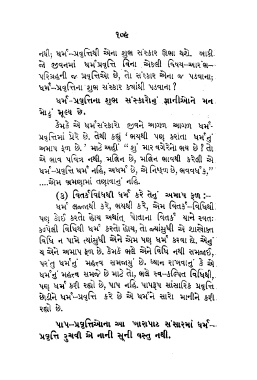 ૧૦૯
નથી; ધર્મ-પ્રવૃત્તિથી એના શુભ સંસ્કાર ઊભા થશે. બાકી
જે જીવનમાં ધર્મપ્રવૃત્તિ વિના એકલી વિષય-આરંભ-
પરિગ્રહની જ પ્રવૃત્તિઓ છે, તો સંસ્કાર એના જ પડવાના;
ધર્મ-પ્રવૃત્તિના શુભ સંસ્કાર ક્યાંથી પડવાના ?
ધર્મ-પ્રવૃત્તિના શુભ સંસ્કારોનું જ્ઞાનીઓને મન
મોટું મૂલ્ય છે.
કેમકે એ ધર્મસંસ્કારો જીવને આગળ આગળ ધર્મ-
પ્રવૃત્તિમાં પ્રેરે છે. તેથી કહ્યું 'ભયથી પણ કરાતા ધર્મનું
અમાપ ફળ છે.' માટે અહીં 'શું મારવગેરેનો ભય છે ? તો
એ ભાવ પવિત્ર નથી, મલિન છે, મલિન ભાવથી કરેલી એ
ધર્મ-પ્રવૃત્તિ ધર્મ નહિ, અધર્મ છે, એ નિષ્ફળ છે, ભવવર્ધક,'
....એમ ભ્રમણામાં તણાવાનું નહિ.
(૩) વિતર્કવિધિથી ધર્મ કરે તેનું અમાપ ફળ:–
ધર્મ લજ્જાથી કરે, ભયથી કરે, એમ વિતર્ક-વિધિથી
પણ કોઈ કરતો હોય અર્થાત્ પોતાના વિતર્ક યાને સ્વતઃ
કલ્પેલી વિધિથી ધર્મ કરતો હોય, તો જ્યાંસુધી એ શાસ્ત્રોક્ત
વિધિ ન પામે ત્યાંસુધી એને એમ પણ ધર્મ કરવા દો. એનું
ય એને અમાપ ફળ છે. કેમકે ભલે એને વિધિ નથી સમજાઈ,
પરંતુ ધર્મનું મહત્ત્વ સમજાયું છે. ધ્યાન રાખવાનું કે એ
ધર્મનું મહત્ત્વ સમજે છે માટે તો, ભલે સ્વ-કલ્પિત વિધિથી,
પણ ધર્મ કરી રહ્યો છે, પાપ નહિ. પાપરૂપ સાંસારિક પ્રવૃત્તિ
છોડીને ધર્મ-પ્રવૃત્તિ કરે છે એ ધર્મને સારો માનીને કરી
રહ્યો છે.
પાપ-પ્રવૃત્તિઓના આ ખારાપાટ સંસારમાં ધર્મ-
પ્રવૃત્તિ રુચવી એ નાની સુની વસ્તુ નથી.